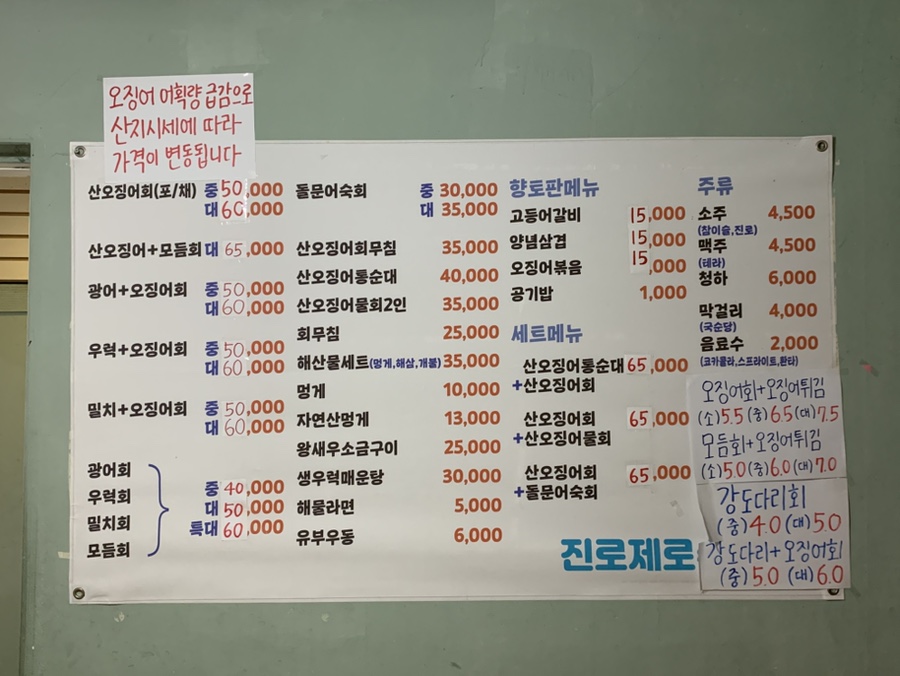 오징어 어획량 급감으로
산지시세에 따라
가격이 변동됩니다
산오징어회(포/채) 중 50,000
대 60,000
산오징어+모듬회 대 65,000
광어+오징어회 중 50,000
대 60,000
우럭+오징어회 중 50,000
대 60,000
밀치+오징어회 중 50,000
대 60,000
광어회
우럭회
밀치회
모듬회
중 40,000
대 50,000
특대 60,000
돌문어숙회 중 30,000
대 35,000
산오징어회무침 35,000
산오징어통순대 40,000
산오징어물회2인 35,000
회무침 25,000
해산물세트(멍게,해삼,개불) 35,000
멍게 10,000
자연산멍게 13,000
왕새우소금구이 25,000
생우럭매운탕 30,000
해물라면 5,000
유부우동 6,000
향토판메뉴
고등어갈비 15,000
양념삼겹 15,000
오징어볶음 15,000
공기밥 1,000
세트메뉴
산오징어통순대 65,000
+산오징어회
산오징어회 65,000
+산오징어물회
산오징어회 65,000
+돌문어숙회
진로제로
주류
소주 4,500
(참이슬,진로)
맥주 4,500
(테라)
청하 6,000
막걸리 4,000
(국순당)
음료수 2,000
(코카콜라,스프라이트,환타)
오징어회+오징어튀김
(소)5.5 (중)6.5 (대)7.5
모듬회+오징어튀김
(소)5.0 (중)6.0 (대)7.0
강도다리회
(중)4.0 (대)5.0
강도다리+오징어회
(중)5.0 (대)6.0